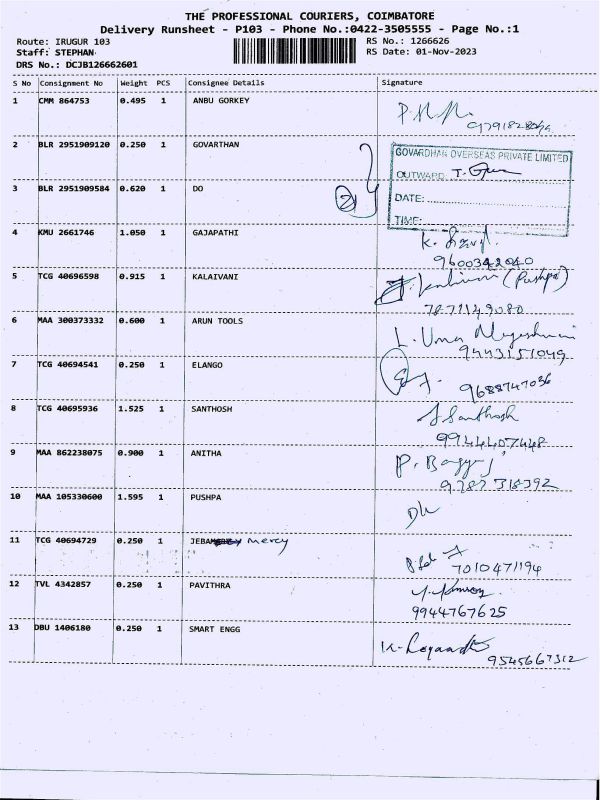 THE PROFESSIONAL COURIERS, COIMBATORE
Delivery Runsheet - P103 - Phone No.:0422-3505555 - Page No.:1
Route: IRUGUR 103 RS No.: 1266626
Staff: STEPHAN RS Date: 01-Nov-2023
DRS No.: DCJB126662601
S No Consignment No Weight PCS Consignee Details Signature
1 CMM 864753 0.495 1 ANBU GORKEY
2 BLR 2951909120 0.250 1 GOVARTHAN
GOVARDHAN OVERSEAS PRIVATE LIMITED
OUTWARD:
3 BLR 2951909584 0.620 1 DO
2
DATE:
TIME:
4 KMU 2661746 1.050 1 GAJAPATHI
9600342040
5 TCG 40696598 0.915 1 KALAIVANI
(Pushpa)
7871149080
6 MAA 300373332 0.600 1 ARUN TOOLS
L. Uma
9443151049
7 TCG 40694541 0.250 1 ELANGO
9688747036
8 TCG 40695936 1.525 1 SANTHOSH
S Santhosh
9944407448
9 MAA 862238075 0.900 1 ANITHA
9787318392
10 MAA 105330600 1.595 1 PUSHPA
11 TCG 40694729 0.250 1 JEBA mercy
7010471194
12 TVL 4342857 0.250 1 PAVITHRA
9944767625
13 DBU 1406180 0.250 1 SMART ENGG
9545667312